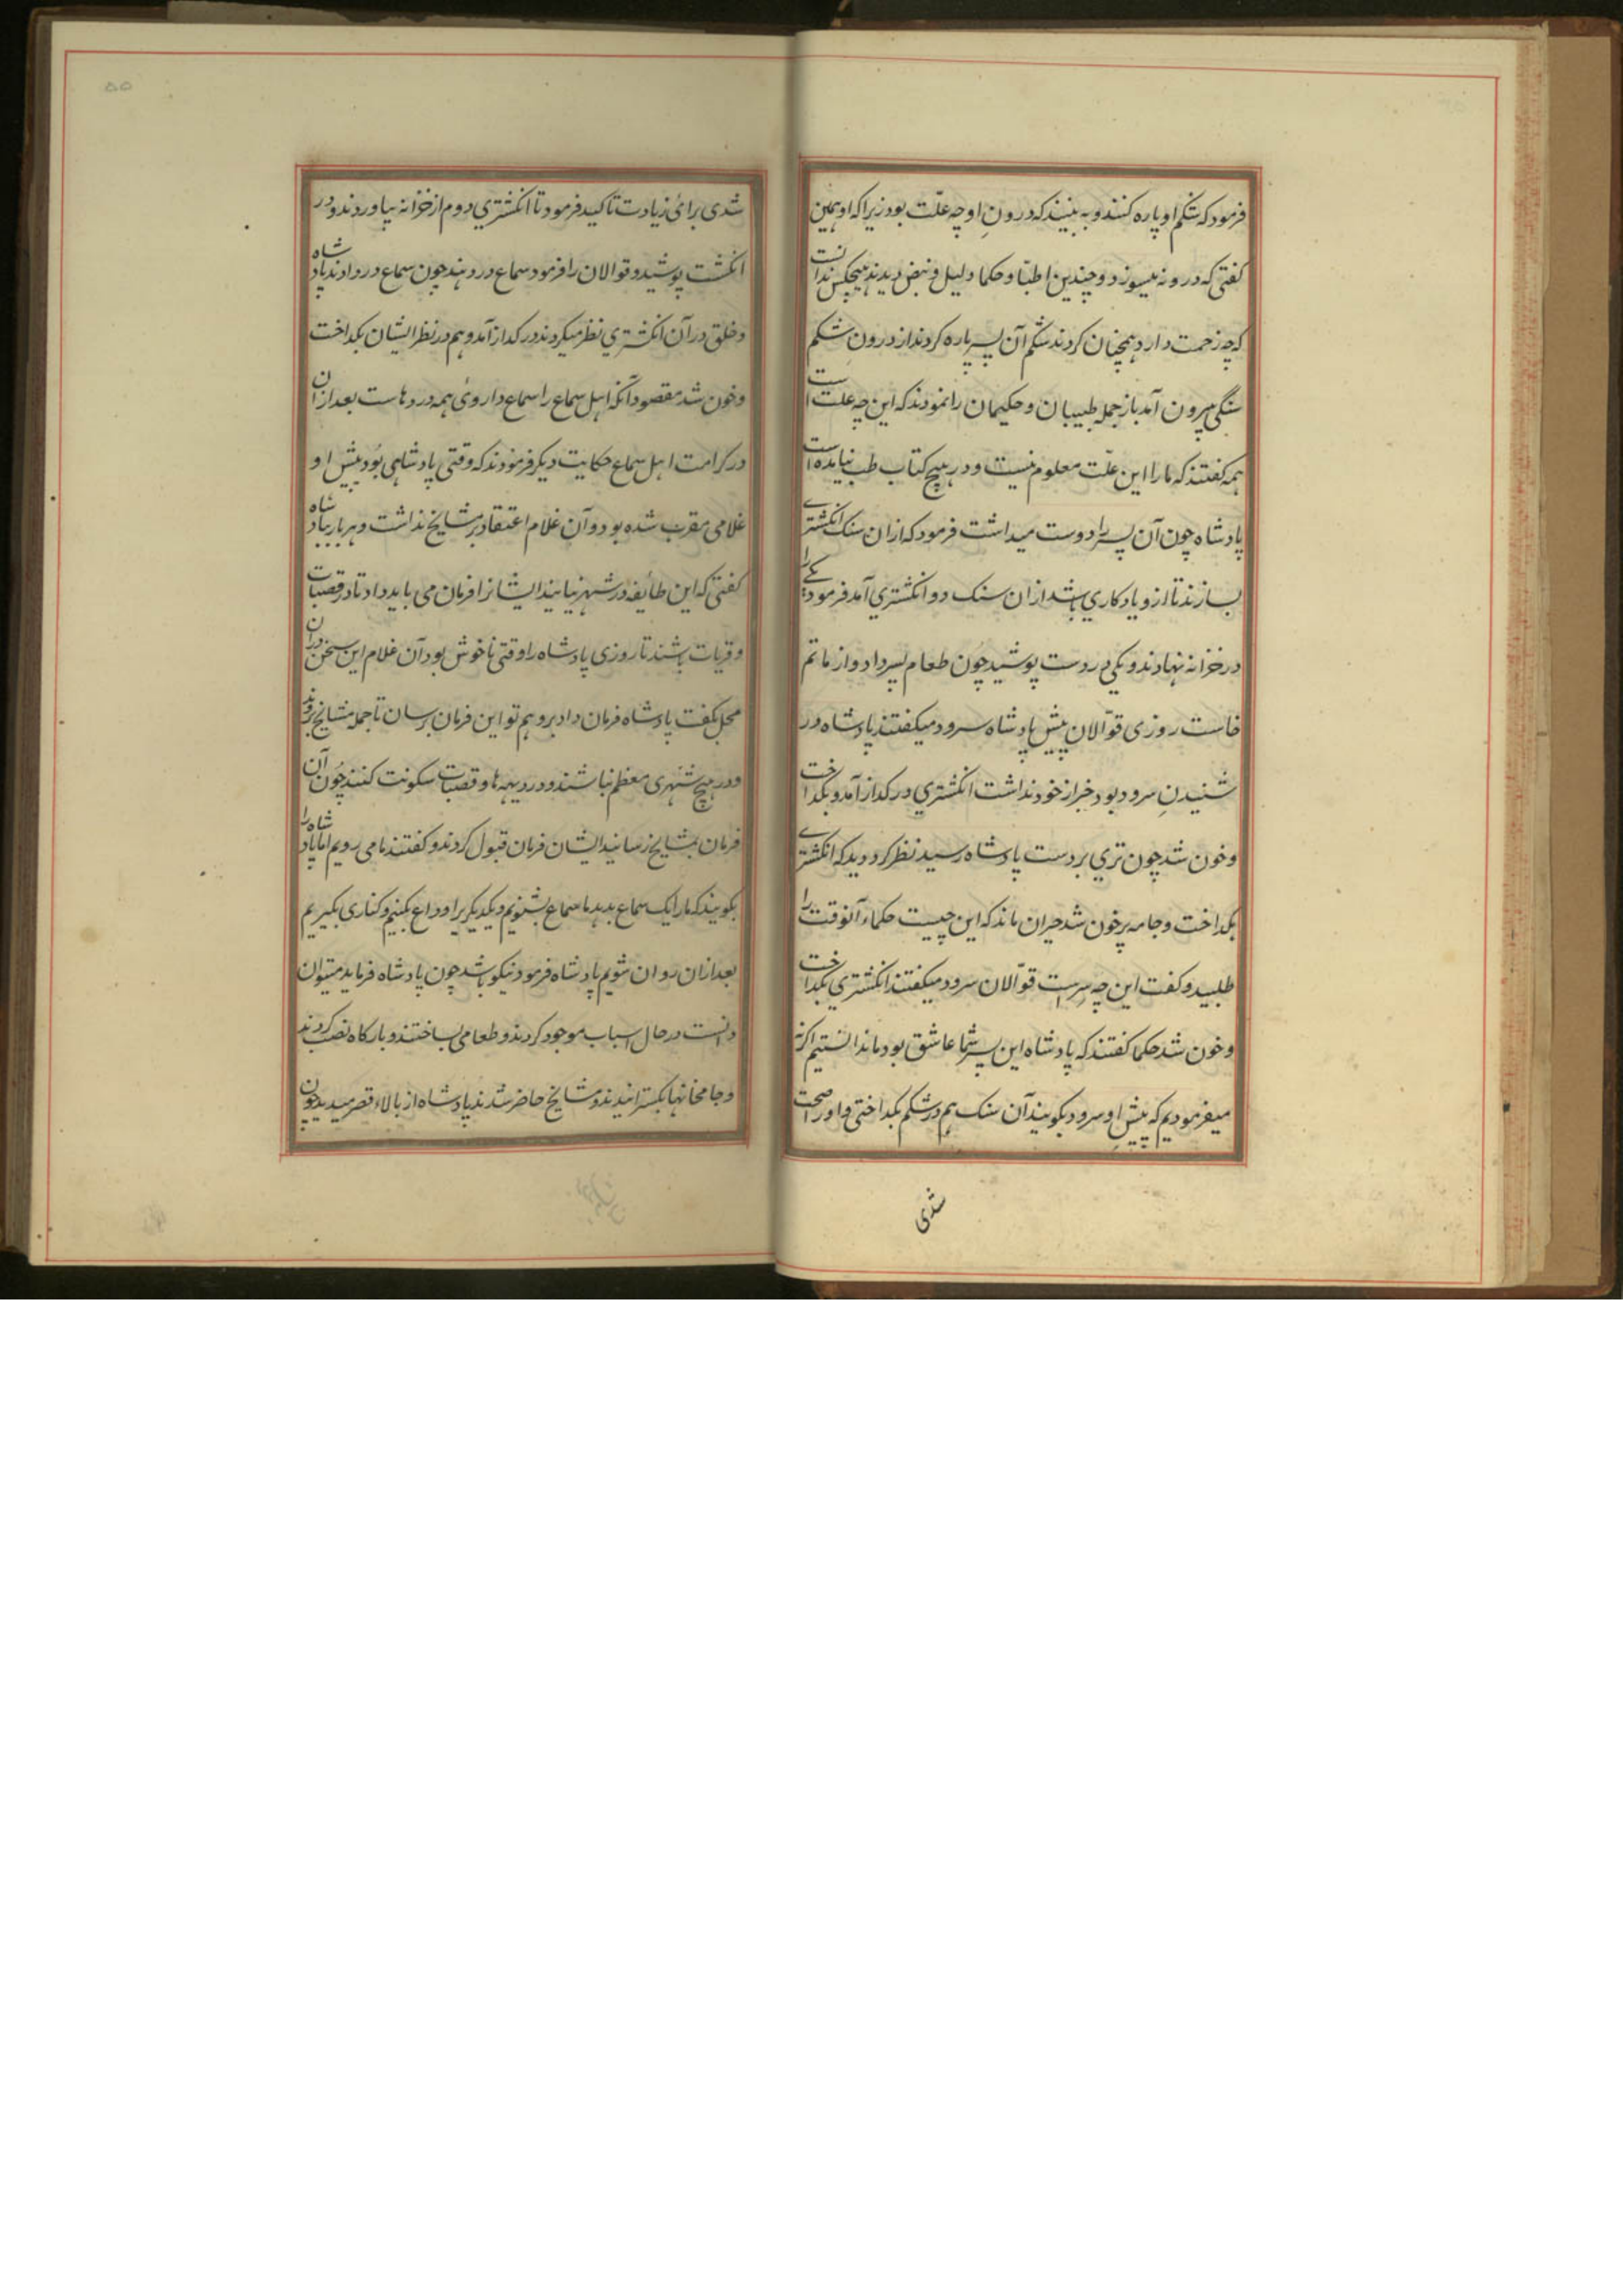 فرمود که شکم او پاره کنند و به بینند که درونِ او چه علّت بود زیرا که او همین
کفتی که درونه میسوزد و چندین اطبّا و حکما دلیل و نبض دیدند هیچکس ندانست
که چه زحمت دارد همچنان کردند شکم آن پسر پاره کردند از درون شکم
سنکی بیرون آمد باز جمله طبیبان و حکیمان را نمودند که این چه علت است
همه کفتند که ما را این علّت معلوم نیست و در هیچ کتاب طب نیامده است
پادشاه چون آن پسر را دوست میداشت فرمود که ازان سنک انکشتری
بسازند تا ازو یادکاری باشد ازان سنک دو انکشتری آمد فرمود یکی را
در خزانه نهادند و یکی در دست پوشید چون طعام پسر داد و از ماتم
خاست روزی قوّالان پیش پادشاه سرود میکفتند پادشاه در
شنیدنِ سرود بود خبر از خود نداشت انکشتری در کداز آمد و بکداخت
و خون شد چون تری بر دست پادشاه رسید نظر کرد دید که انکشتری
بکداخت و جامه پر خون شد حیران ماند که این چیست حکماء آنوقت را
طلبید و کفت این چه سرست قوّالان سرود میکفتند انکشتری بکداخت
و خون شد حکما کفتند که پادشاه این پسر شما عاشق بود ما ندانستیم اکرنه
میفرمودیم که پیشِ او سرود بکویند آن سنک هم در شکم بکداختی و او را صحت
شدی
شدی برائی زیادت تاکید فرمود تا انکشتری دوم از خزانه بیاوردند و در
انکشت پوشید و قوالان را فرمود سماع در دهند چون سماع در دادند پادشاه
و خلق در آن انکشتری نظر میکردند در کداز آمد و هم در نظر ایشان بکداخت
و خون شد مقصود آنکه اهل سماع را سماع داروئی همه دردهاست بعد ازان
در کرامت اهل سماع حکایت دیکر فرمودند که وقتی پادشاهی بُود پیش او
غلامی مقرب شده بود و آن غلام اعتقاد بر مشایخ نداشت و هر بار پادشاه
کفتی که این طائفه در شهر نیایند ایشانرا فرمان می باید داد تا در قصبات
و قریات باشند تا روزی پادشاه را وقتی ناخوش بود آن غلام این سخن دران
محل بکفت پادشاه فرمان داد برو هم تو این فرمان برسان تا جمله مشایخ بروند
و در هیچ شهری معظم نباشند و در دیهه ها و قصبات سکونت کنند چُون آن
فرمان بمشایخ رسانید ایشان فرمان قبول کردند و کفتند ما می رویم اما پادشاه را
بکویند که ما را یک سماع بدهد ما سماع بشنویم و یکدیکر را وداع بکنیم و کناری بکیریم
بعد ازان روان شویم پادشاه فرمود نیکو باشد چون پادشاه فرماید میتوان
دانست در حال اسباب موجود کردند و طعامی بساختند و بارکاه نصب کردند
و جامخانها بکسترانیدند و مشایخ حاضر شدند پادشاه از بالاء قصر میدید چون